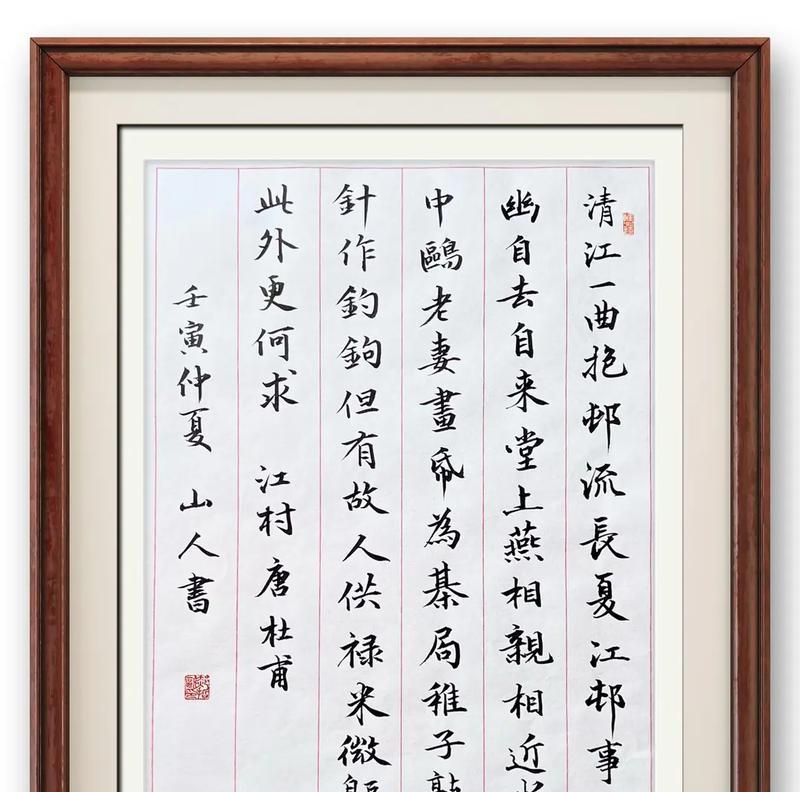 清江一曲抱邨流長夏江邨事
幽自去自来堂上燕相親相近
中鷗老妻畫帋為棊局稚子敲
針作釣鉤但有故人供禄米微軀
此外更何求 江村 唐 杜甫
壬寅仲夏 山人書